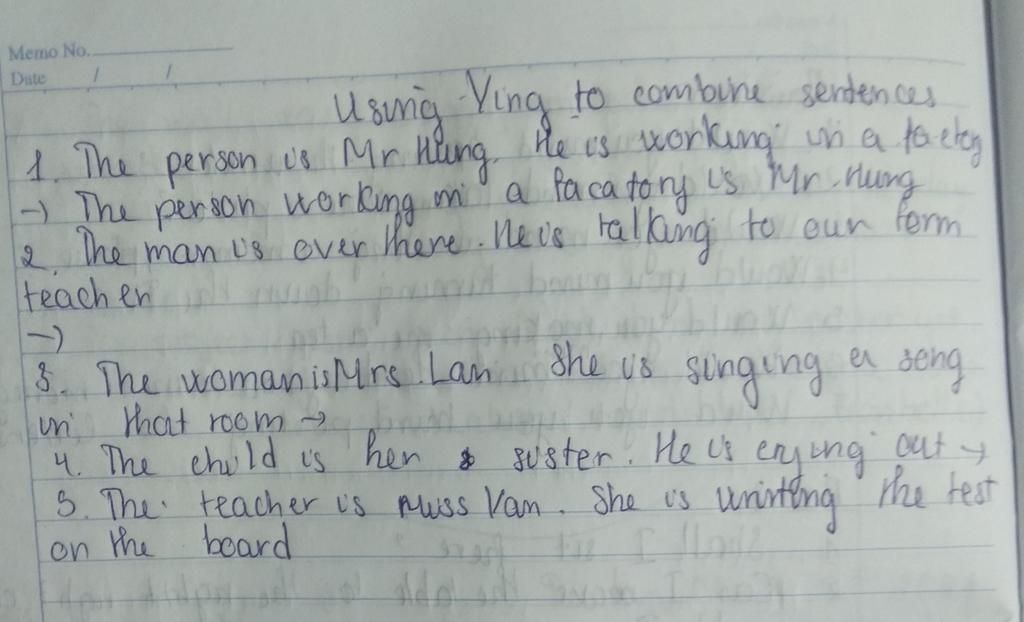 Memo No.
Date / /
Using Ving to combine sentences
1. The person is Mr Hung. He is working in a factory
→ The person working in a facatory is Mr. Hung
2. The man is over there. He is talking to our form
teacher
→
3. The woman is Mrs. Lan She is singing a song
in that room →
4. The child is her sister. He is crying out →
5. The teacher is Miss Van. She is writing the test
on the board